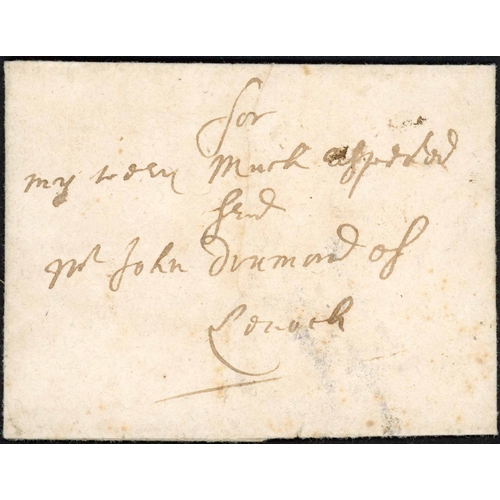 for
my wery Much respeked
frend
Mr John Drumond of
Lenoch